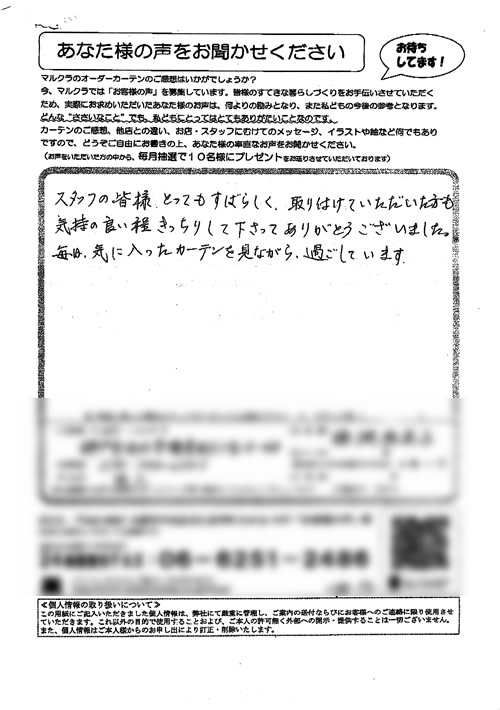 あなた様の声をお聞かせください
お待ち
してます！
マルクラのオーダーカーテンのご感想はいかがでしょうか？
今、マルクラでは「お客様の声」を募集しています。皆様のすてきな暮らしづくりをお手伝いさせていただく
ため、実際にお求めいただいたあなた様のお声は、何よりの励みとなり、また私どもの今後の参考となります。
どんな“ささいなこと”でも、私どもにとってはとてもありがたいことなのです。
カーテンのご感想、他店との違い、お店・スタッフにむけてのメッセージ、イラストや絵など何でもあり
ですので、どうぞご自由にお書きの上、あなた様の率直なお声をお聞かせください。
（お声をいただいた方の中から、毎月抽選で１０名様にプレゼントをお送りさせていただいております）
スタッフの皆様、とってもすばらしく、取り付けていただいた方も
気持の良い程きっちりして下さってありがとうございました。
毎日、気に入ったカーテンを見ながら、過ごしています。
06-6251-2486
≪個人情報の取り扱いについて≫
この用紙にご記入いただきました個人情報は、弊社にて厳重に管理し、ご案内の送付ならびにお客様へのご連絡に限り使用させ
ていただきます。これ以外の目的で使用することおよび、ご本人の許可無く外部への開示・提供することは一切ございません。
また、個人情報はご本人様からのお申し出により訂正・削除いたします。